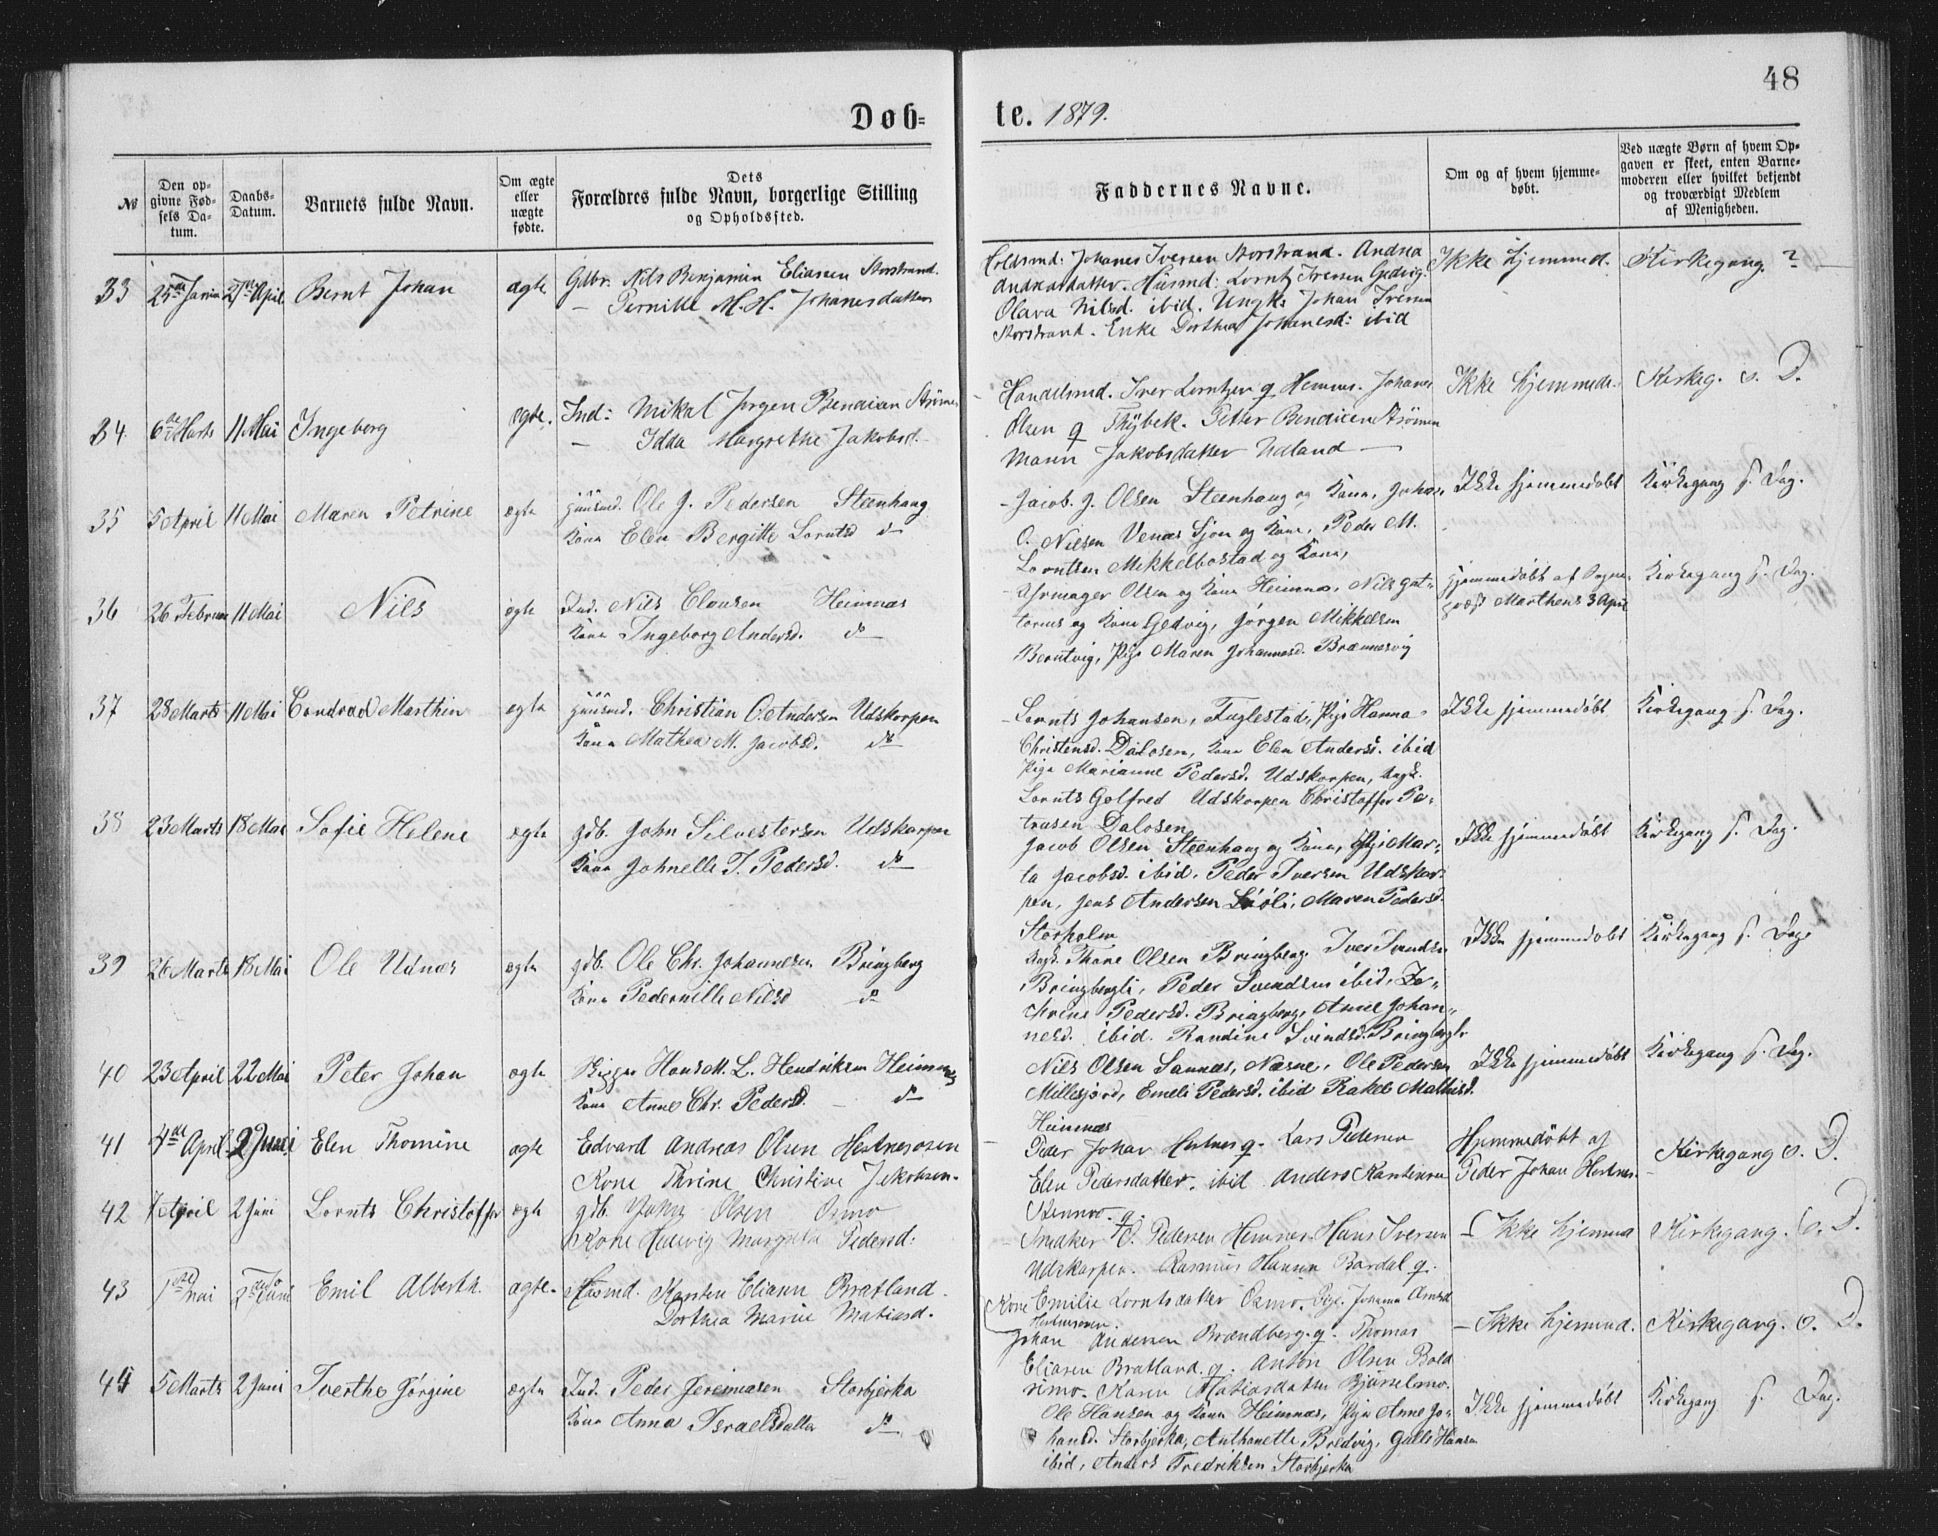 48
Døb=
te. 1879.
№
Den op-
givne Fød-
sels Da-
tum.
Daabs-
Datum.
Barnets fulde Navn.
Om ægte
eller
uægte
fødte.
Dets
Forældres fulde Navn, borgerlige Stilling
og Opholdssted.
Faddernes Navne.
Om og af hvem hjemme-
døbt.
Ved uægte Børn af hvem Op-
gaven er skeet, enten Barne-
moderen eller hvilket bekjendt
og troværdigt Medlem
af Menigheden.
33 April Bernt Johan ægte Gdbr. Nils Benjamin Eliasen Storstrand.
— Pernille M. H. Johanesdatter
Johanes Iversen Storstrand. Andrea
Andreasdatter. Huusmd: Lorntz Iversen Gedvig.
Olava Nilsd. ibid. Ungk. Johan Iversen
Storstrand. Enke Dorthea Johanesd: ibid
Ikke hjemmed. Kirkegang. ? —
34 6te Marts 11 Mai Ingeborg ægte. Ind: Mikal Jørgen Bendixen
— Idda Margrethe Jakobsd.
Handelsmd. Iver Lorntzen q Hemnes. Johanes
Olsen q Thybek. Petter Bendicen Strømen
Maren Jakobsdatter Udland —
Ikke hjemmede. Kirkeg. s. D.
35 5 April 11 Mai Maren Petrine ægte Huusmd. Ole J. Pedersen Steenhaug
Kone Elen Bergitte Lorntsd do
Jacob. J. Olsen Steenhaug og Kone, Johan
O. Nielsen Venæs Sjon og Kone, Peder M.
Lorntsen Mikkelbostad og Kone,
Ikke hjemmedøbt Kirkegang s. Dag.
36 26 Februar 11 Mai Nils ægte Ind. Nils Clausen Heimnæs
Kone Ingeborg Andersd. do
Uhrmager Olsen og Kone Heimnæs, Nils
og Kone Gedvig, Jørgen Mikkelsen
Berntvig, Pige Maren Johannesd. Brænnesvig
Hjemmedøbt af Sogne-
præst Marthens 3 April
Kirkegang s. Dag.
37 28 Marts 11 Mai Condrad Marthin ægte Huusmd. Christian O. Andersen Udskorpen
Kone Mathea M. Jacobsd. do
Lornts Johansen, Fuglestad, Pige Hanna
Christensd. Dalosen, Kone Elen Andersd. ibid
Pige Marianne Pedersd. Udskorpen, Ungk.
Lornts Golfred Udskorpen Christoffer Pe-
trusen Dalosen
Ikke hjemmedøbt Kirkegang s. Dag.
38 23 Marts 18 Mai Sofie Helene ægte gdb. John Silvestersen Udskorpen
Kone Johnelle T. Pedersd. do
Jacob Olsen Steenhaug og Kone, Pige Mar-
ta Jacobsd. ibid, Peder Iversen Udskor-
pen, Jens Andersen Maren Pedersd.
Storholm
Ikke hjemmedøbt Kirkegang s. Dag.
39 26 Marts 18 Mai Ole Udnæs ægte gdb. Ole Chr. Johannesen Bringberg
Kone Pedernille Nilsd do
Ungk. Thore Olsen Bringberg, Iver Svendsen
Bringbergli, Peder Svendsen ibid,
Pedersd. Bringberg, Anne Johan-
nesd. ibid. Randine Svendsd. Bringbergli
Ikke hjemmedøbt Kirkegang s. Dag
40 23 April 22 Mai Peter Johan ægte Hans M. L. Hendriksen Heimnæs
Kone Anne Chr. Pedersd. do
Nils Olsen Sannæs, Næsne, Ole Pedersen
Millesjord, Emeli Pedersd. ibid Rakel Mathisd.
Heimnæs
Ikke hjemmedøbt Kirkegang s. Dag.
41 4de April 2 Juni Elen Thomine ægte Edvard Andreas Olsen Hestnesosen
Kone Thrine Christine Jakobsen.
Peder Johan Hestnes q. Lars Pedersen
Elen Pedersdatter. ibid Anders Karstensen
Hjemmedøbt af
Peder Johan Hestnes.
Kirkegang s. D.
42 April 2 Juni Lornts Christoffer ægte gdb. John Olsen Osmo
Kone Hedevig Margreta Pedersd:
Snedker O. Pedersen Hemnes. Hans Iversen
Udskarpen. Rasmus Hansen Bardal q.
Kone Emilie Lorntsdatter Osmo. Pige. Johanna
Hestnesosen.
Ikke hjemmed Kirkegang. s. D.
43 1ste Mai 2den Juni Emil Alberth. ægte. Huusmd. Karsten Eliasen Bratland.
Dorthea Marie Matiasd.
Johan Andersen Brændberg. q. Thomas
Eliasen Bratland q. Anton Olsen Bold
rimo. Karen Matiasdatter
Ikke hjemmed. Kirkegang. s. D.
44 5 Marts 2 Juni Iverthe Jørgine ægte Ind. Peder Jeremiasen Storbjerka
Kone Anna Israelsdatter do
Ole Hansen og Kone Heimnæs, Pige Anne Jo-
hansd. Storbjerka, Anthonette Bredvig, Hansen
ibid, Anders Fredriksen Storbjerka
Ikke hjemmedøbt Kirkegang s. Dag.